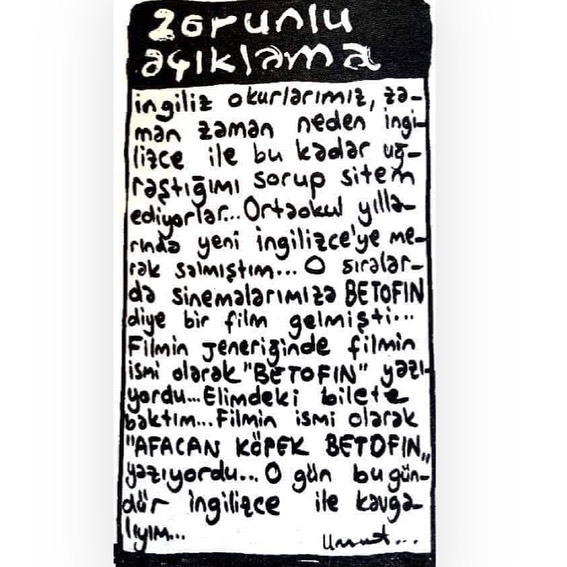 zorunlu
açıklama
ingiliz okurlarımız, za-
man zaman neden ingi-
lizce ile bu kadar uğ-
raştığımı sorup sitem
ediyorlar...Ortaokul yılla-
rında yeni ingilizce'ye me-
rak salmıştım... O sıralar-
da sinemalarımıza BETOFIN
diye bir film gelmişti...
Filmin jeneriğinde filmin
ismi olarak "BETOFIN" yazı-
yordu...Elimdeki bilete
baktım...Filmin ismi olarak
"AFACAN KÖPEK BETOFIN"
yazıyordu... O gün bugün-
dür ingilizce ile kavga-
lıyım...
Umut...